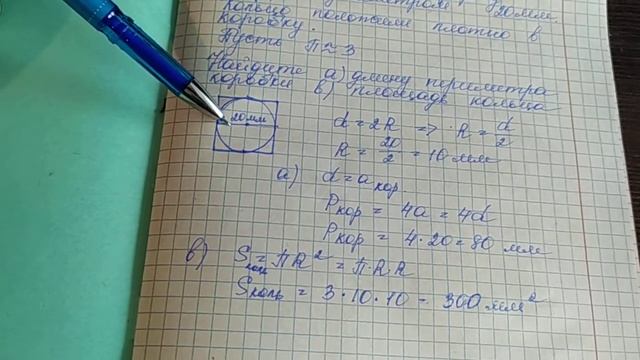 кольцо диаметром 20мм.
кольцо положили плотно в
коробку.
Пусть П ≈ 3
Найдите а) длину периметра
коробки в) площадь кольца
20мм
d = 2R => R = d/2
R = 20/2 = 10 мм
а) d = a кор
Pкор = 4a = 4d
Pкор = 4·20 = 80 мм
в) Sкольц = ПR² = П·R·R
Sкольц = 3·10·10 = 300 мм²